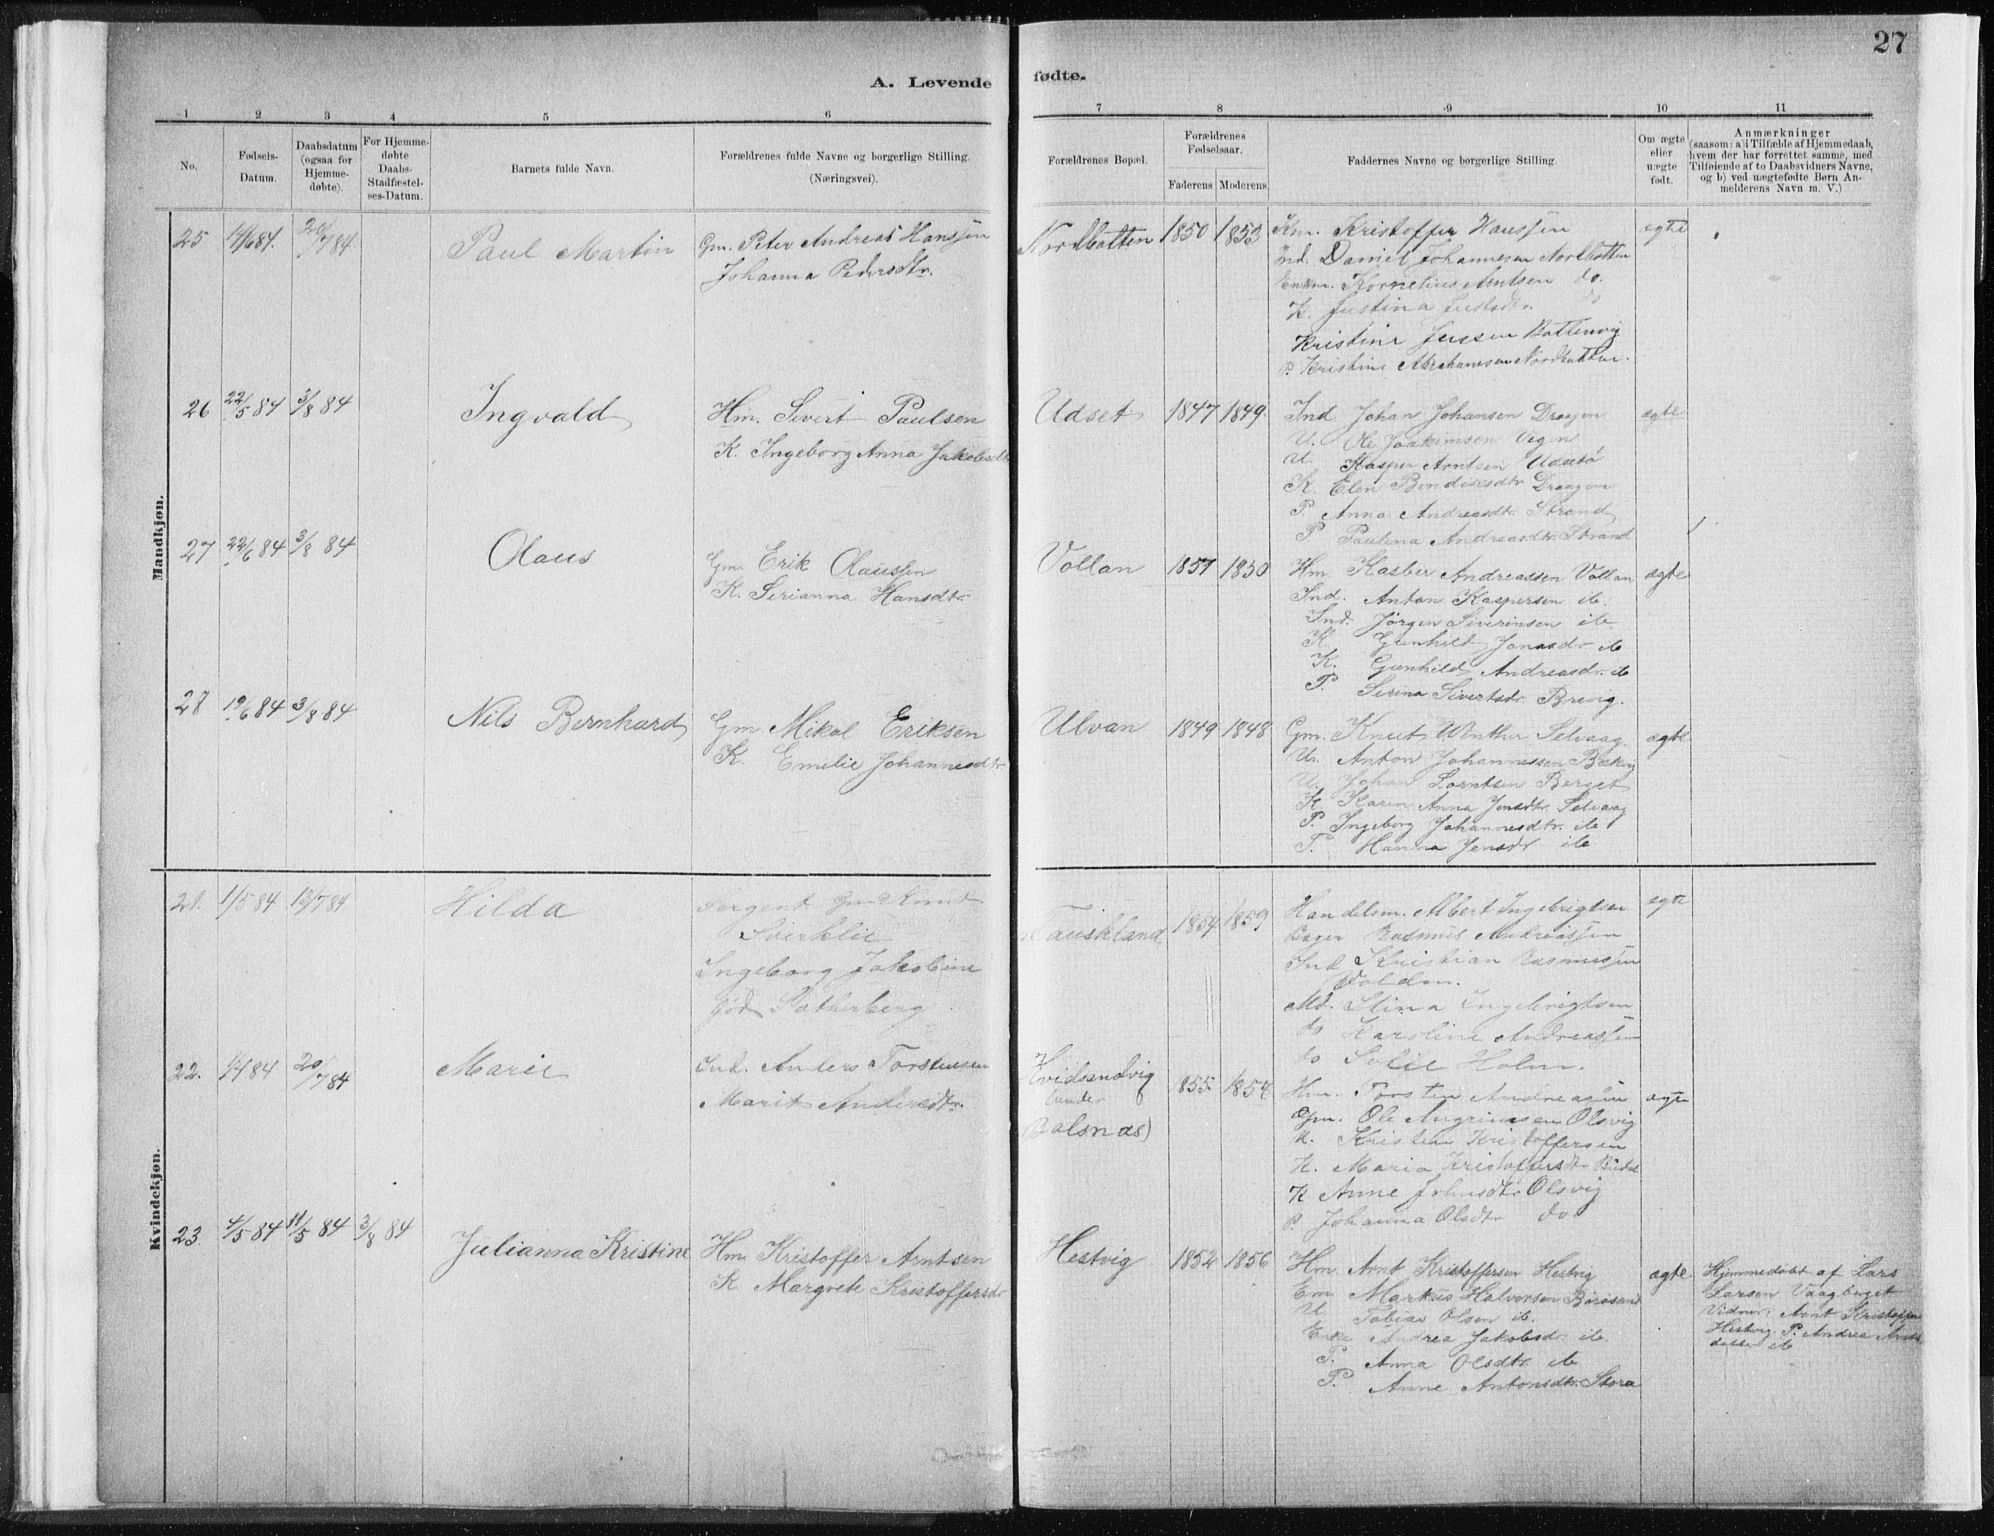 27
A. Levende fødte.
1 2 3 4 5 6 7 8 9 10 11
No.
Fødsels-
Datum.
Daabsdatum
(ogsaa for
Hjemme-
døbte).
For Hjemme-
døbte
Daabs-
Stadfæstel-
ses-Datum.
Barnets fulde Navn.
Forældrenes fulde Navne og borgerlige Stilling.
(Næringsvei).
Forældrenes Bopæl.
Forældrenes
Fødselsaar.
Faderens Moderens
Faddernes Navne og borgerlige Stilling.
Om ægte
eller
uægte
født.
Anmærkninger
(saasom: a) i Tilfælde af Hjemmedaab,
hvem der har forrettet samme, med
Tilføiende af to Daabsvidners Navne,
og b) ved uægtefødte Børn An-
melderens Navn m. V.)
Mandkjøn.
25 14/6 84. 20/7 84 Paul Martin
Gm. Peter Andreas Hanssen
Johanna Pedersdtr.
Nordbotten 1850 1853
Km. Kristoffer Hanssen
Ind. Daniel Johannesen Nordbotten
Enkm. Kornelius Arntsen do.
K. Justina Justsdtr. do
Kristine Jenssen Bottenvig
P. Kristine Abrahamsen Nordbotten.
ægte
26 22/5 84 3/8 84 Ingvald
Hm. Sivert Paulsen
K. Ingeborg Anna Jakobsdtr
Udset 1847 1849.
Ind Johan Johansen Dragen
U. Ole Joakimsen Vegen
U. Kasper Arntsen Udset
K. Elen Bendiksdtr Dragen
P. Anna Andreasdtr Strand
P. Paulina Andreasdtr. Strand
ægte
27 22/6 84 3/8 84 Olaus
Gm. Erik Olaussen
K. Serianna Hansdtr.
Vollan 1857 1850
Hm Kasber Andreassen Vollan
Ind. Anton Kaspersen ib.
Ind. Jørgen Siverinsen ib.
K. Gunhild Jonasdr ib
K. Gunhild Andreasdr. ib
P. Serina Sivertsdr Brevig.
ægte
28 19/6 84 3/8 84 Nils Bernhard
Gm Mikal Eriksen
K. Emilie Johannesdtr
Ulvan 1849 1848
Gm. Knut Winther Selvaag.
U. Anton Johannessen Bækvig
U. Johan Lorntsen Berget
K Karen Anna Jensdtr. Selvaag
P. Ingeborg Johannesdtr. ib
P. Hanna Jensdr ib
ægte
Kvindekjøn.
21. 1/5 84 13/7 84 Hilda
Sergent Gm Knut
Ingeborg Jakobine
fød Sotherberg
1854 1859
Handelsm. Albert Ingebrigtsen
Rasmus Andreassen
Ind Kristian Rasmussen
Voldan.
Md. Stina Ingebrigtsen
do Karoline Andreassen
do Holm.
ægte
22. 1/4 84 20/7 84 Marie
Ind. Anders Torstensen
Marit Andersdtr.
Kvidsandvig
(under
Balsnæs)
1855 1857
Hm. Torsten Andreassen
Gm. Ole Angrimsen Olsvig
U. Kristen Kristoffersen
K. Maria Kristofersdtr
K Anne Johnsdtr Olsvig
P. Johanna Olsdtr do
ægte
23 4/5 84 11/5 84 3/8 84 Julianna Kristine
Hm. Kristoffer Arntsen
K. Margrete Kristoffersdr
Hestvig 1852 1856
Hm. Arnt Kristoffersen Hestvig
Em Markus Halvorsen Børøsund
U Tobias Olsen ib.
Enke Andrea Jakobsdr ib.
P. Anna Olsdtr. ib
P. Anne Antonsdtr. Storø
ægte
Hjemmedøbt af Lars
Larsen Vaagbuget
Vidner: Arnt Kristoffersen
Hestvig. P. Andrea Arnts-
datter ib